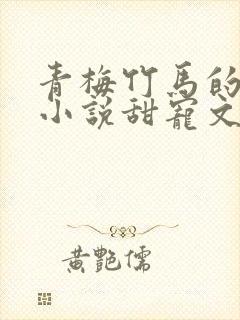 青梅竹馬的
小說甜寵文
黃艷儒